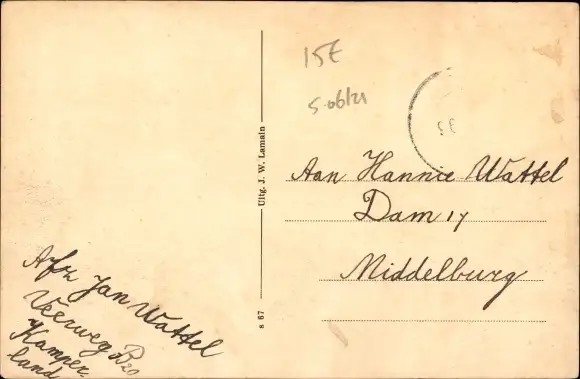 15E
5-06/21
Aan Hannie Wattel
Dam 17
Middelburg
Uitg. J. W. Lamain
s 67
Afz Jan Wattel
Veerweg B20
Kamper-
land